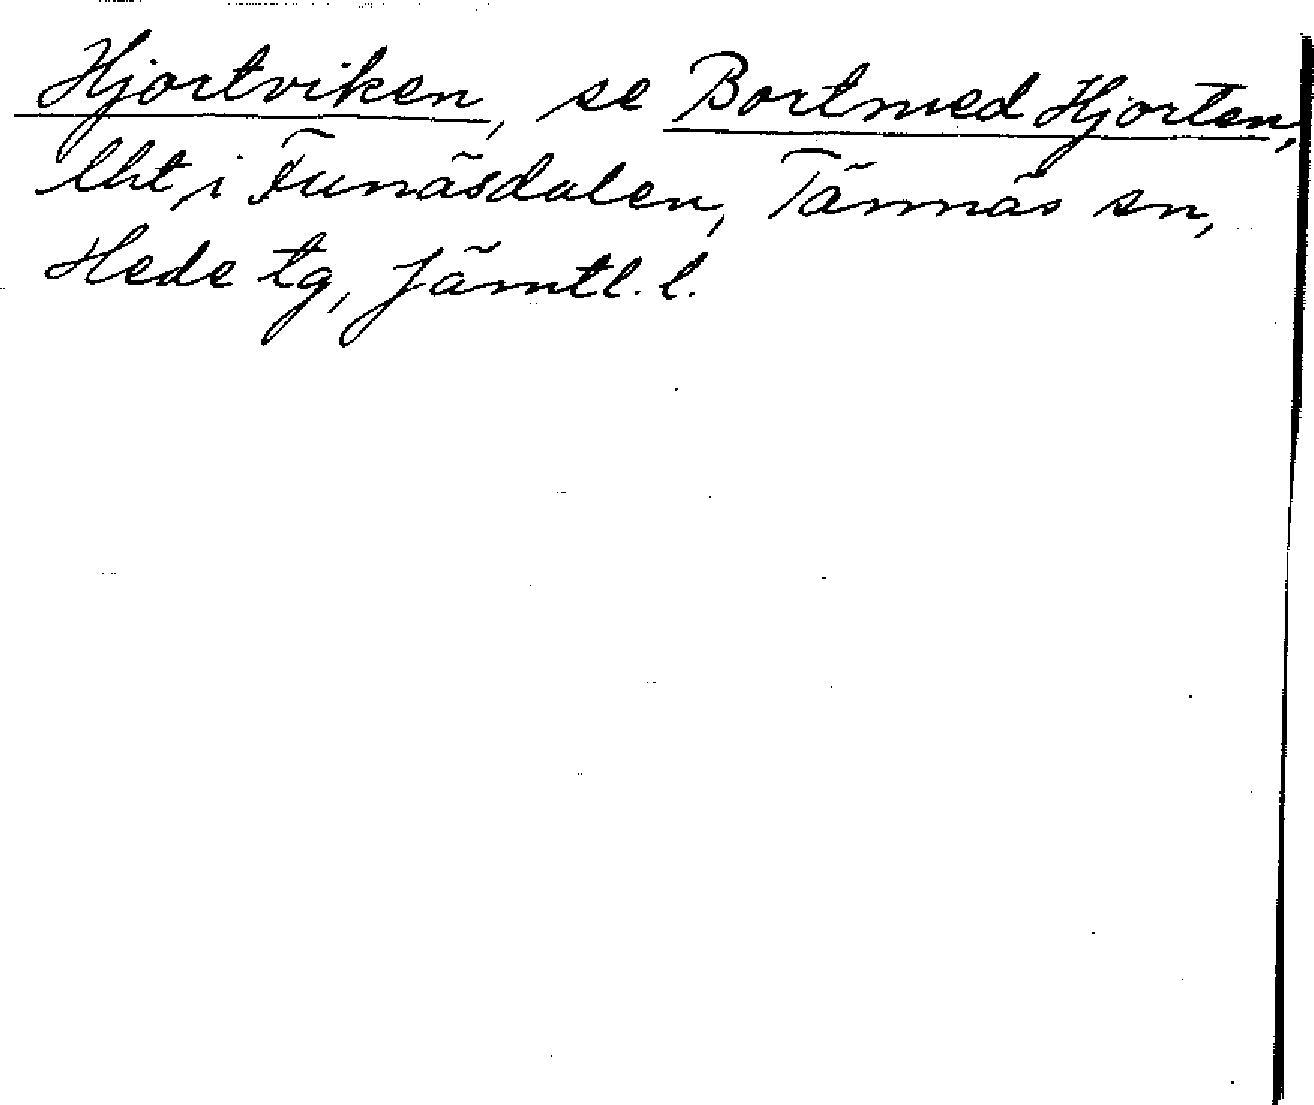 Hjortviken, se Bortmed Hjorten,
lht, i Funäsdalen, Tännäs sn,
Hede tg, Jämtl. l.